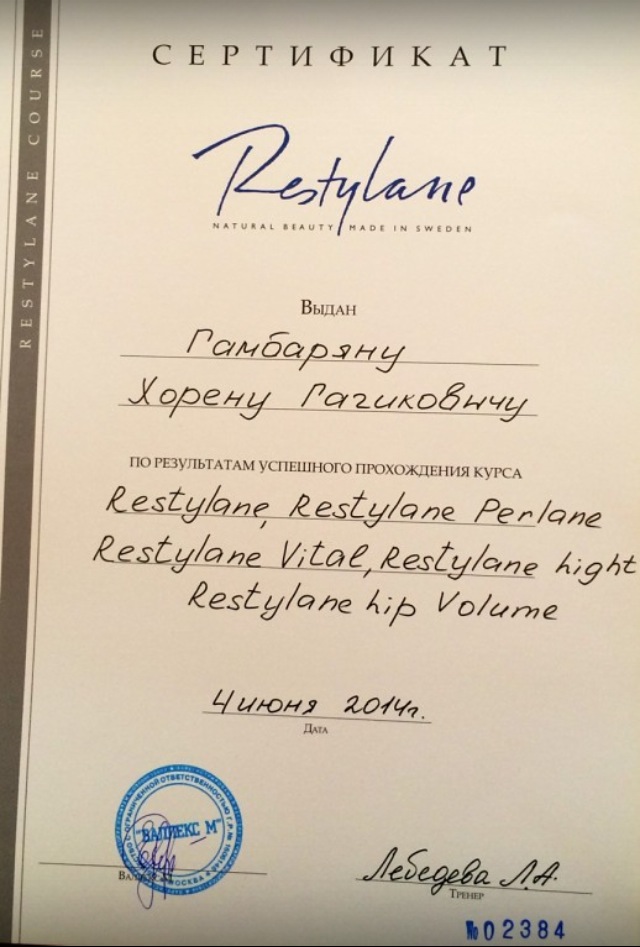 RESTYLANE COURSE
СЕРТИФИКАТ
Restylane
NATURAL BEAUTY MADE IN SWEDEN
ВЫДАН
Гамбаряну
Хорену Гагиковичу
ПО РЕЗУЛЬТАТАМ УСПЕШНОГО ПРОХОЖДЕНИЯ КУРСА
Restylane, Restylane Perlane
Restylane Vital, Restylane hight
Restylane hip Volume
4 июня 2014г.
ДАТА
"ВАЛЛЕКС М"
МОСКВА
Лебедева Л.А.
ТРЕНЕР
№02384